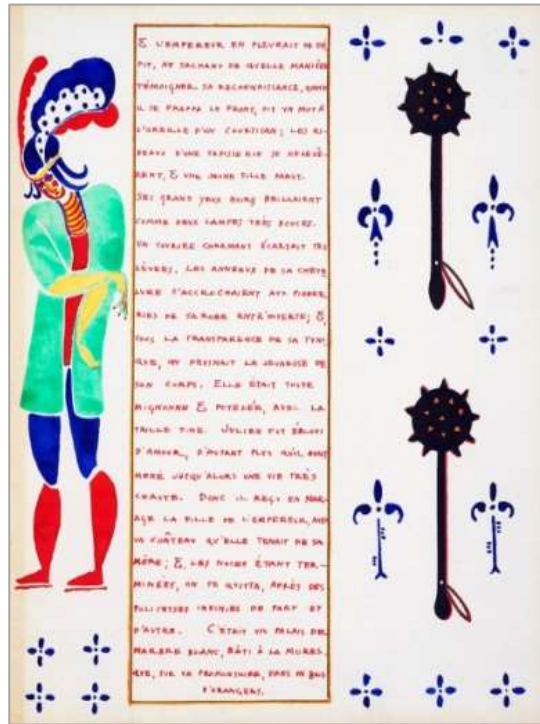 & L'EMPEREUR EN PLEURAIT DE DÉ-
PIT, NE SACHANT DE QUELLE MANIÈRE
TÉMOIGNER SA RECONNAISSANCE, QUAND
IL SE FRAPPA LE FRONT, DIT UN MOT À
L'OREILLE D'UN COURTISAN; LES RI-
DEAUX D'UNE TAPISSERIE SE RELEVÈ-
RENT, & UNE JEUNE FILLE PARUT.
SES GRANDS YEUX NOIRS BRILLAIENT
COMME DEUX LAMPES TRÈS DOUCES.
UN SOURIRE CHARMANT ÉCARTAIT SES
LÈVRES, LES ANNEAUX DE SA CHEVE-
LURE S'ACCROCHAIENT AUX PIERRE-
RIES DE SA ROBE ENTR'OUVERTE; &,
SOUS LA TRANSPARENCE DE SA TUNI-
QUE, ON DEVINAIT LA JEUNESSE DE
SON CORPS. ELLE ÉTAIT TOUTE
MIGNONNE & POTELÉE, AVEC LA
TAILLE FINE. JULIEN FUT ÉBLOUI
D'AMOUR, D'AUTANT PLUS QU'IL AVAIT
MENÉ JUSQU'ALORS UNE VIE TRÈS
CHASTE. DONC IL REÇUT EN MARI-
AGE LA FILLE DE L'EMPEREUR, AVEC
UN CHÂTEAU QU'ELLE TENAIT DE SA
MÈRE; &, LES NOCES ÉTANT TER-
MINÉES, ON SE QUITTA, APRÈS DES
POLITESSES INFINIES DE PART ET
D'AUTRE. C'ÉTAIT UN PALAIS DE
MARBRE BLANC, BÂTI À LA MORES-
QUE, SUR UN PROMONTOIRE, DANS UN BOIS
D'ORANGERS.